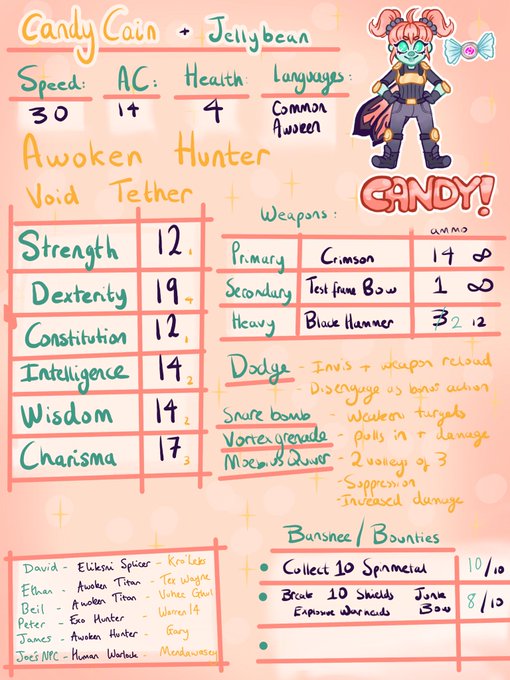 Candy Cain + Jellybean
Speed: AC: Health: Languages:
30 14 4 Common
Awoken
Awoken Hunter
Void Tether
CANDY!
Strength 12 1
Dexterity 19 4
Constitution 12 1
Intelligence 14 2
Wisdom 14 2
Charisma 17 3
Weapons:
ammo
Primary Crimson 14 ∞
Secondary Test frame Bow 1 ∞
Heavy Black Hammer 3 2 12
Dodge - Invis + weapon reload
- Disengage as bonus action
Snare bomb - Weaken targets
Vortex grenade - pulls in + damage
Moebius Quiver - 2 volleys of 3
- Suppression
- Increased damage
Banshee / Bounties
Collect 10 Spinmetal 10/10
Break 10 Shields Junk 8/10
Explosive Warheads Bow
David - Eliksni Splicer - Kro'leks
Ethan - Awoken Titan - Tex Wayne
Beil - Awoken Titan -
Peter - Exo Hunter - Warren 14
James - Awoken Hunter - Gary
Joe's NPC - Human Warlock -